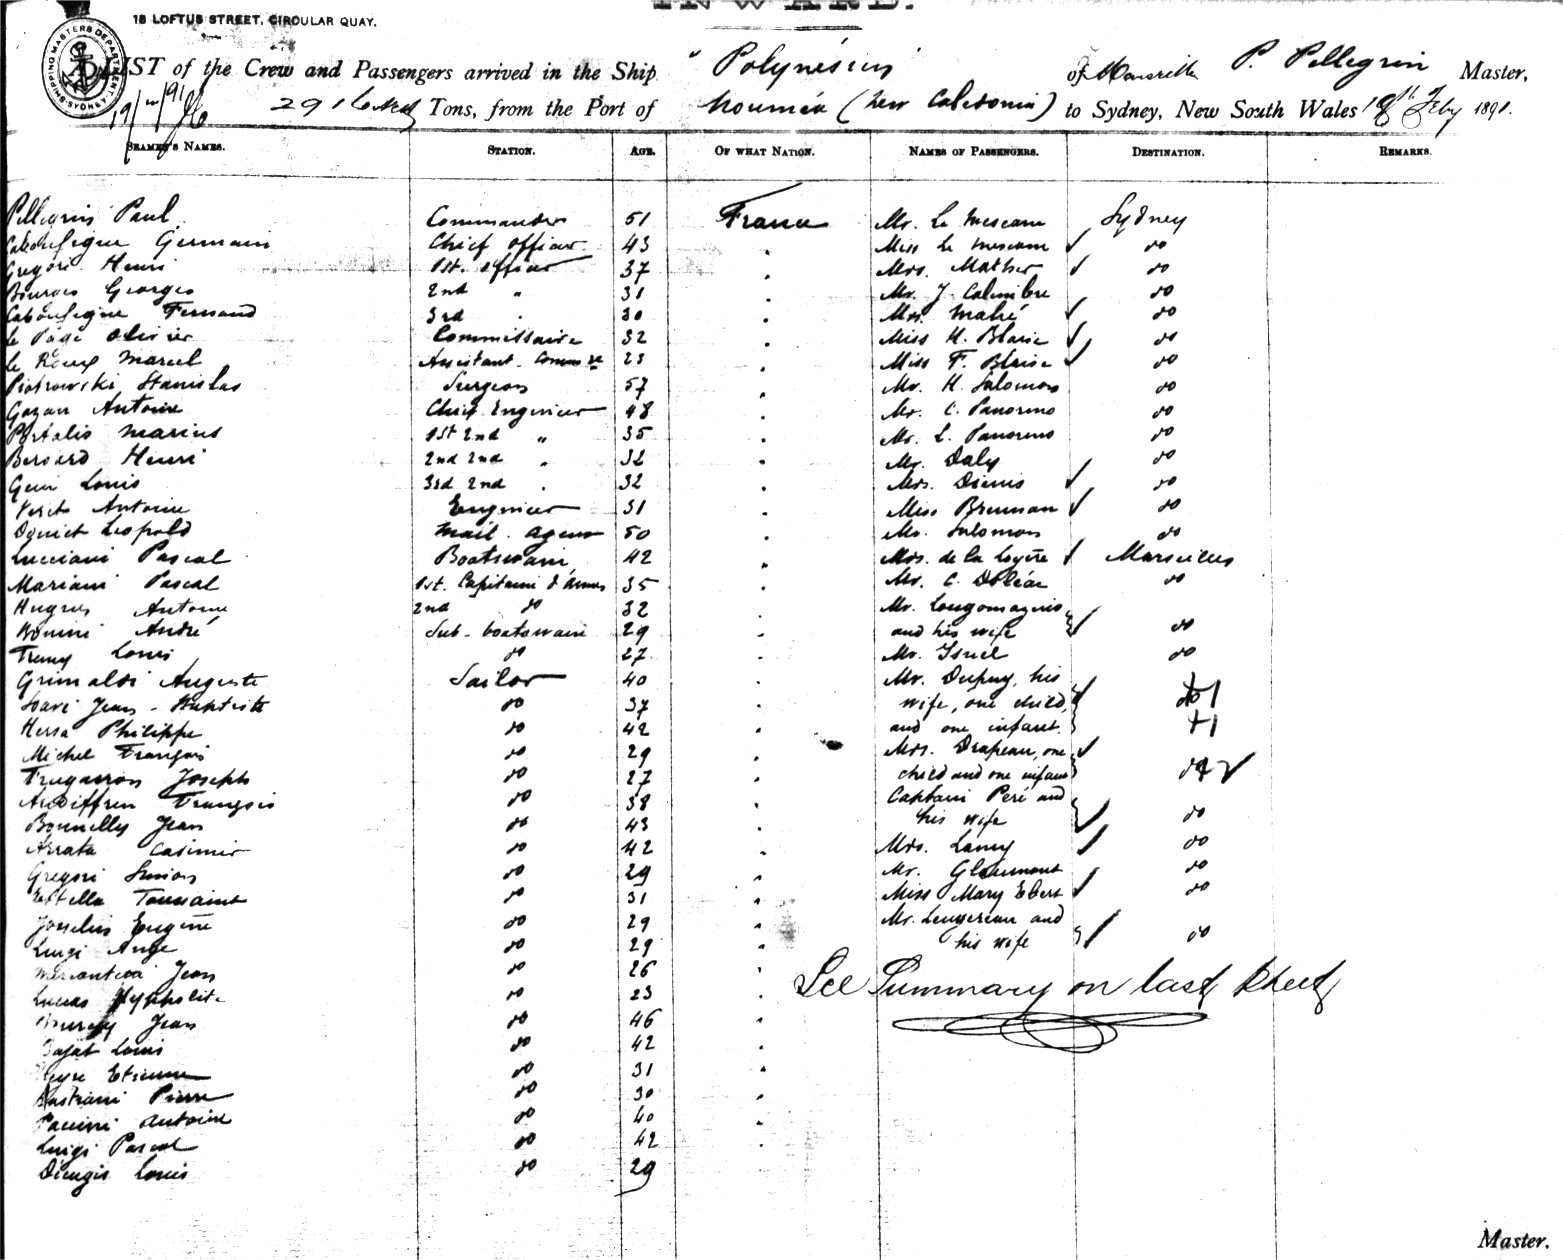 INWARD.
18 LOFTUS STREET, CIRCULAR QUAY.
SHIPPING MASTERS DEPARTMENT SYDNEY
LIST of the Crew and Passengers arrived in the Ship "Polynésien" of Marseille P. Pellegrin Master,
Tons, from the Port of Nouméa (New Caledonia) to Sydney, New South Wales 18th Feby 1891.
SEAMEN'S NAMES. STATION. AGE. OF WHAT NATION. NAMES OF PASSENGERS. DESTINATION. REMARKS.
Pellegrin Paul Commander 51 France Mr. Le Mescam Sydney
Germain Chief officer 43 " Miss Le Mescam ✓ do
Gregori Henri 1st. officer 37 " Mrs. Mather ✓ do
Bourges Georges 2nd " 31 " Mr. J. Calimbre do
Fernand 3rd " 30 " Mrs. Mahé ✓ do
Le Page Olivier Commissaire 32 " Miss H. Blaise ✓ do
Le Roux Marcel Assistant Commre 23 " Miss F. Blaise ✓ do
Piotrowski Stanislas Surgeon 57 " Mr. H. Salomon do
Gazan Antoine Chief Engineer 48 " Mr. C. Panorino do
Portalis Marius 1st 2nd " 35 " Mr. L. Panorino do
Berard Henri 2nd 2nd " 32 " Mr. Daly do
Louis 3rd 2nd " 32 " Mrs. Dienis ✓ do
Antoine Engineer 31 " Miss Brennan ✓ do
Leopold Mail agent 50 " Mr. Salomon do
Lucciani Pascal Boatswain 42 " Mrs. de la Loyère ✓ Marseilles
Mariani Pascal 1st. Capitaine d'armes 35 " Mr. C. Doléac do
Hugues Antoine 2nd do 32 " Mr. Lougomazino
Bonini André Sub-boatswain 29 " and his wife ✓ do
Louis do 27 " Mr. Isnel do
Grimaldi Auguste Sailor 40 " Mr. Dupuy, his
Jean-Baptiste do 37 " wife, one child, ✓ do +1
Philippe do 42 " and one infant. +1
Michel François do 29 " Mrs. Drapeau, one ✓
Joseph do 27 " child and one infant do
Ardiffren François do 38 " Captain Peré and
Bonnelly Jean do 43 " his wife ✓ do
Arrata Casimir do 42 " Mrs. Lamy ✓ do
Gregori Simon do 29 " Mr. Glaumont do
Estella Toussaint do 31 " Miss Mary Ebert ✓ do
Josselin Eugène do 29 " Mr. Leugereau and
Luigi Ange do 29 " his wife ✓ do
Jean do 26 "
Lucas Hyppolite do 23 " See Summary on last sheet
Jean do 46 "
Louis do 42 "
Etienne do 31 "
Bastiani Pierre do 30 "
Paccini Antoine do 40 "
Luigi Pascal do 42 "
Louis do 29
Master.